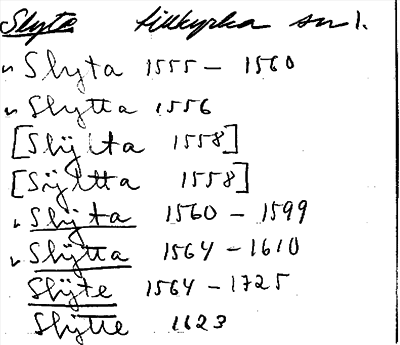 Slyte tillkyrka sn l.
" Slyta 1555 – 1560
" Slytta 1556
[Slÿlta 1558]
[Sÿltta 1558]
" Slÿta 1560 – 1599
" Slÿtta 1564 – 1610
Slÿte 1564 – 1725
Slÿtte 1623